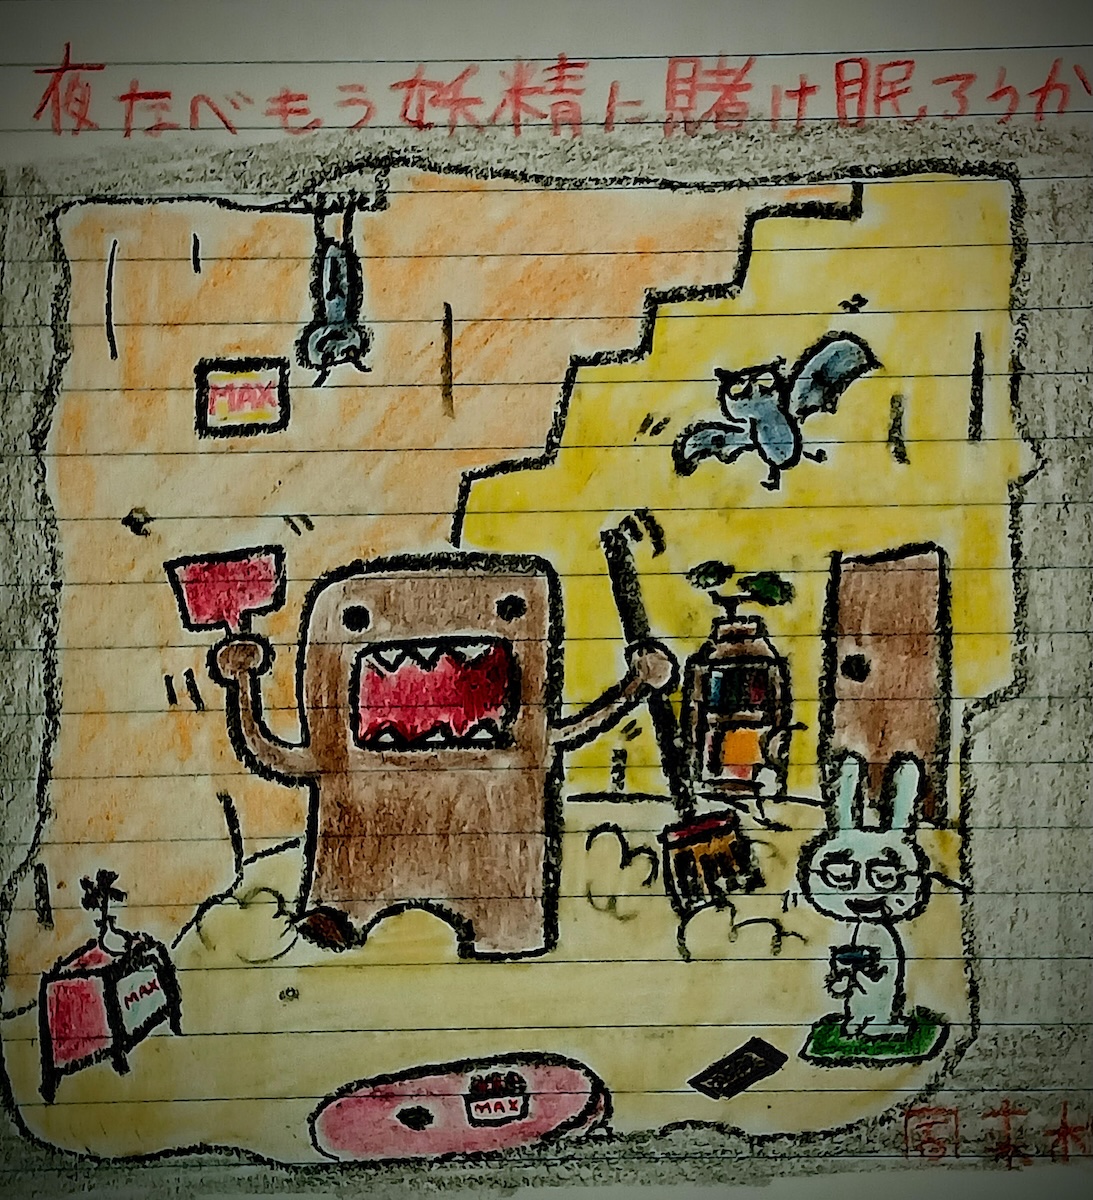 夜たべもう妖精に賭け眠ろうか
MAX
MAX
MAX